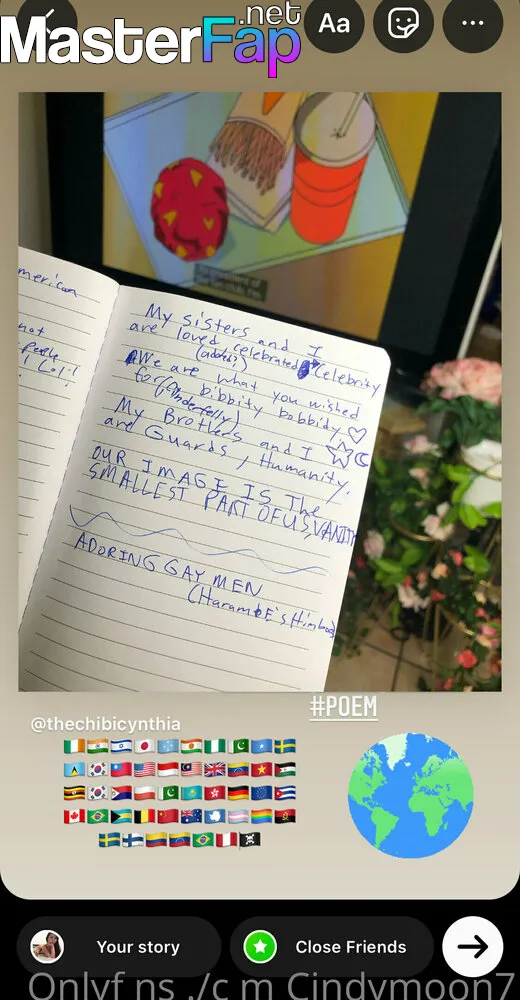 MasterFap
.net
Aa
merican
not
People
Lol!
My sisters and I
are loved, celebrated Celebrity
(adored)
We are what you wished
for bibbity bobbidy
My Brothers and I
are Guards, Humanity.
OUR IMAGE IS The
SMALLEST PART OF US, VANITY
ADORING GAY MEN
(HarambE's Himbos)
#POEM
@thechibicynthia
Your story
Close Friends
Onlyf ns ./c m Cindymoon7